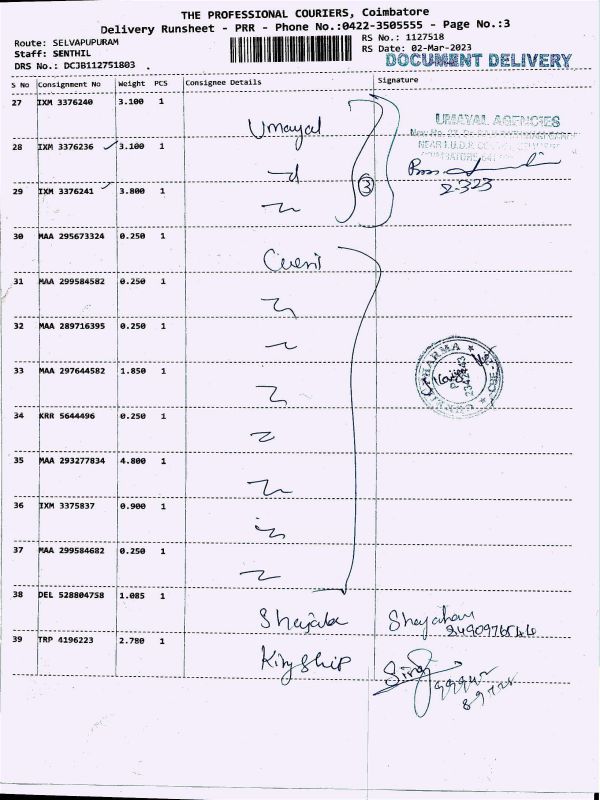 THE PROFESSIONAL COURIERS, Coimbatore
Delivery Runsheet - PRR - Phone No.:0422-3505555 - Page No.:3
Route: SELVAPUPURAM
RS No.: 1127518
Staff: SENTHIL
RS Date: 02-Mar-2023
DRS No.: DCJB112751803
DOCUMENT DELIVERY
S No Consignment No Weight PCS Consignee Details Signature
27 IXM 3376240 3.100 1 Umayal
UMAYAL AGENCIES
28 IXM 3376236 3.100 1
29 IXM 3376241 3.800 1
3
2.3.23
30 MAA 295673324 0.250 1
31 MAA 299584582 0.250 1
32 MAA 289716395 0.250 1
33 MAA 297644582 1.850 1
PHARMA
34 KRR 5644496 0.250 1
35 MAA 293277834 4.800 1
36 IXM 3375837 0.900 1
37 MAA 299584682 0.250 1
38 DEL 528804758 1.085 1
39 TRP 4196223 2.780 1 Kingship